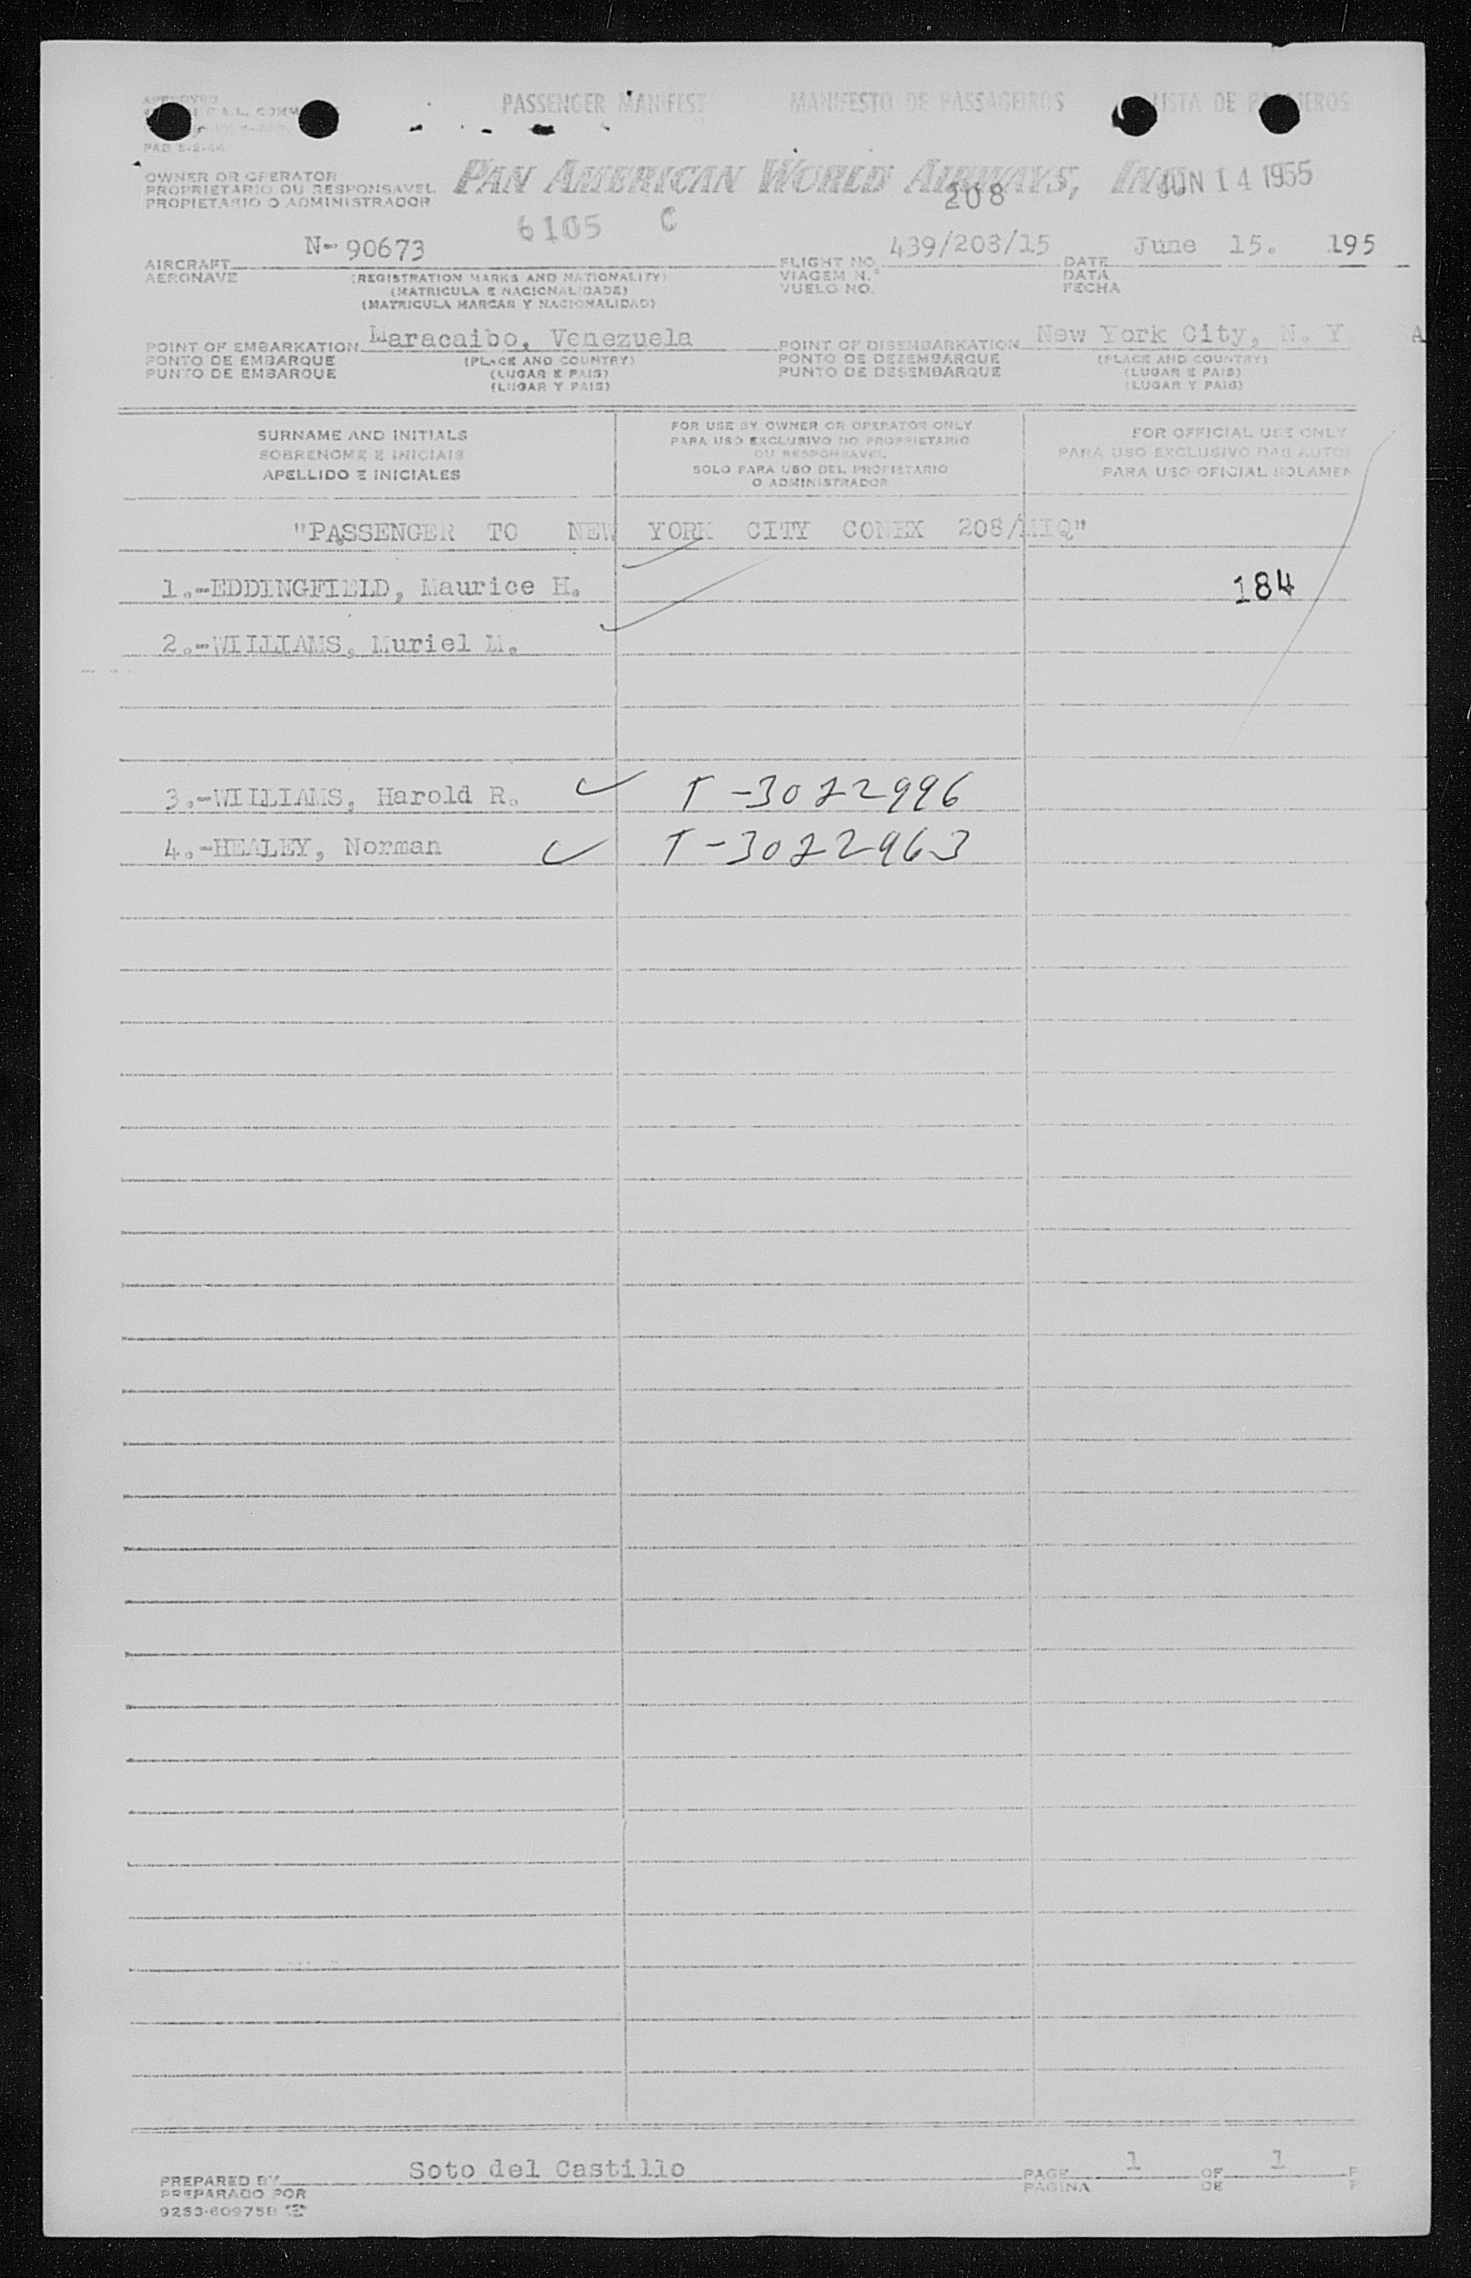 PASSENGER MANIFEST MANIFESTO DE PASSAGEIROS LISTA DE
APPROVED
PAB 5-2-44
OWNER OR OPERATOR
PROPRIETARIO OU RESPONSAVEL
PROPIETARIO O ADMINISTRADOR
PAN AMERICAN WORLD AIRWAYS, INC.
JUN 14 1955
208
6105 C
AIRCRAFT N-90673 FLIGHT NO. 439/203/15 DATE June 15. 195
AERONAVE (REGISTRATION MARKS AND NATIONALITY) VIAGEM N.º DATA
(MATRICULA E NACIONALIDADE) VUELO NO. FECHA
(MATRICULA MARCAS Y NACIONALIDAD)
POINT OF EMBARKATION Maracaibo, Venezuela POINT OF DISEMBARKATION New York City, N. Y A
PONTO DE EMBARQUE (PLACE AND COUNTRY) PONTO DE DEZEMBARQUE (PLACE AND COUNTRY)
PUNTO DE EMBARQUE (LUGAR E PAIS) PUNTO DE DESEMBARQUE (LUGAR E PAIS)
(LUGAR Y PAIS) (LUGAR Y PAIS)
SURNAME AND INITIALS
SOBRENOME E INICIAIS
APELLIDO E INICIALES
FOR USE BY OWNER OR OPERATOR ONLY
PARA USO EXCLUSIVO DO PROPRIETARIO
OU RESPONSAVEL
SOLO PARA USO DEL PROPIETARIO
O ADMINISTRADOR
FOR OFFICIAL USE ONLY
PARA USO EXCLUSIVO DAS AUTO
PARA USO OFICIAL SOLAMEN
"PASSENGER TO NEW YORK CITY CONEX 208/MIQ"
1.-EDDINGFIELD, Maurice H. 184
2.-WILLIAMS, Muriel M.
3.-WILLIAMS, Harold R. T-3022996
4.-HEALEY, Norman T-3022963
PREPARED BY Soto del Castillo PAGE 1 OF 1 P
PREPARADO POR PAGINA DE P
9253-60975B